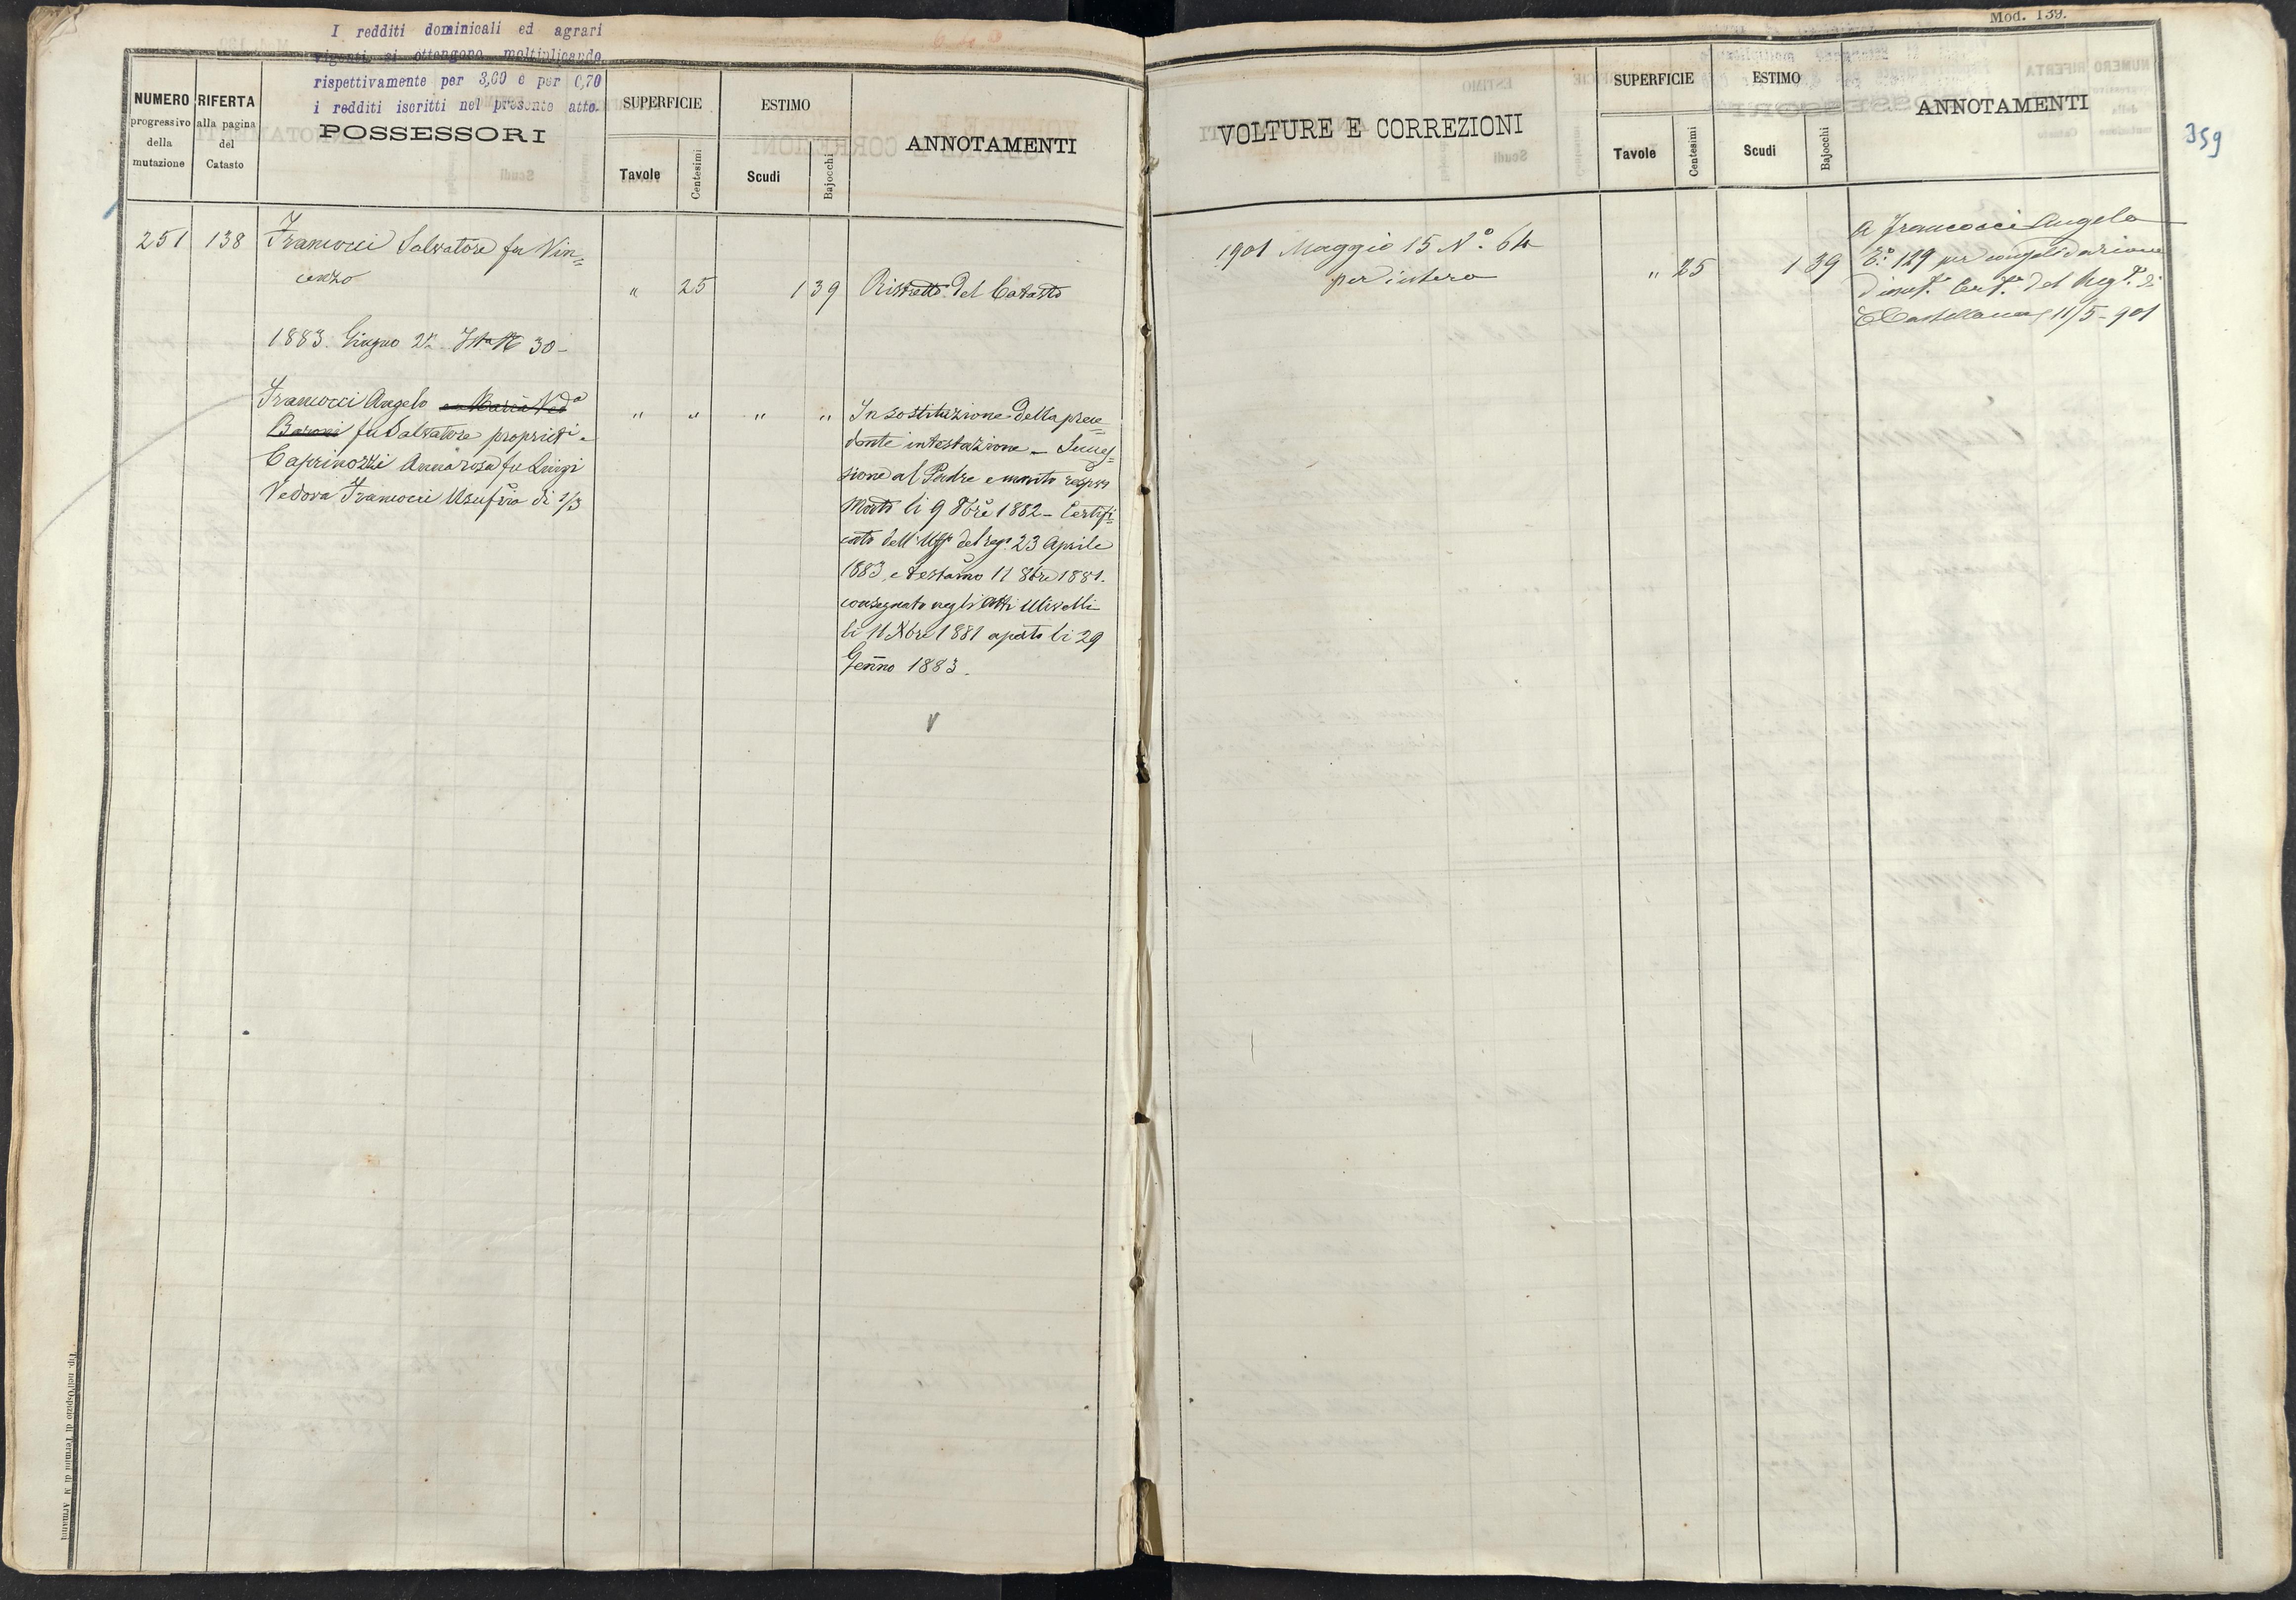 I redditi dominicali ed agrari
vigenti si ottengono moltiplicando
rispettivamente per 3,60 e per 0,70
i redditi iscritti nel presente atto.
NUMERO
progressivo
della
mutazione
RIFERTA
alla pagina
del
Catasto
POSSESSORI
SUPERFICIE
Tavole
Centesimi
ESTIMO
Scudi
Bajocchi
ANNOTAMENTI
251 138 Francocci Salvatore fu Vin=
cenzo
" 25 1 39 Ristretto del Catasto
1883. Giugno 30-
Francocci Angelo e Maria Ved.a
Baroni fu Salvatore propriet.i e
Caprinozzi Annarosa fu Luigi
Vedova Francocci Usuf.ria di 1/3
" " " " In sostituzione della prece=
dente intestazione - Succes=
sione al Padre e marito
Morto li 9 1882 - Certifi=
cato dell'Uff. del reg.º 23 Aprile
1883, e testam.º 11 8bre 1881.
consegnato negli Atti
li 11 Xbre 1881 aperto li 29
Genn.º 1883.
V
Tip. nell'Ospizio di Termini di N. Armanni
Mod. 139.
VOLTURE E CORREZIONI
SUPERFICIE
Tavole
Centesimi
ESTIMO
Scudi
Bajocchi
ANNOTAMENTI
359
1901 Maggio 15 Nº. 64
per intero
" 25 1 39
a Francocci Angelo
129 per consolidazione
Cert.º del Reg.º di
C Castellana 11/5-901